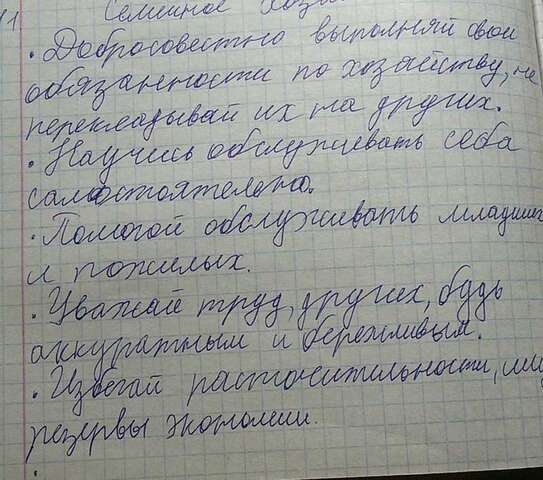 Семейное
• Добросовестно выполняй свои
обязанности по хозяйству, не
перекладывай их на других.
• Научись обслуживать себя
самостоятельно.
• Помогай обслуживать младших
и пожилых.
• Уважай труд других, будь
аккуратным и бережливым.
• Избегай расточительности,
резервы экономии.